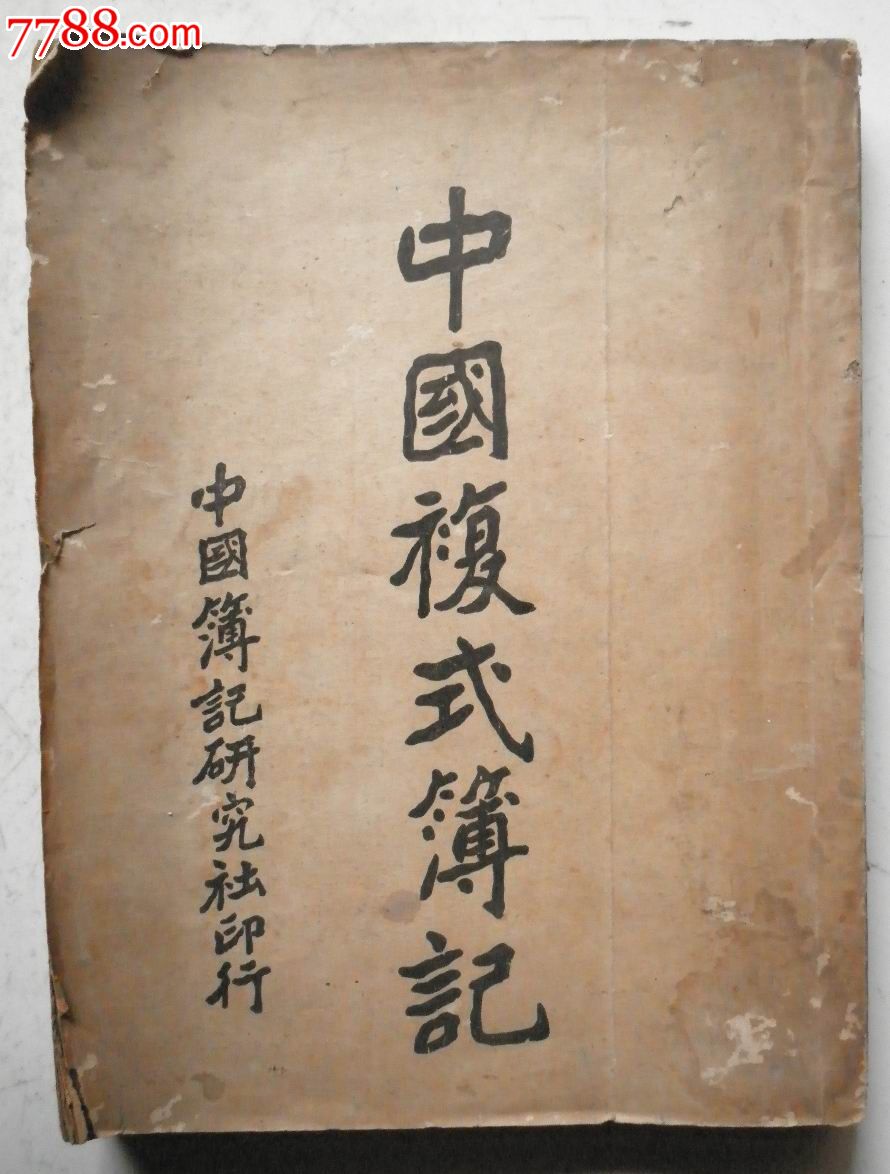 7788.com
中國複式簿記
中國簿記研究社印行